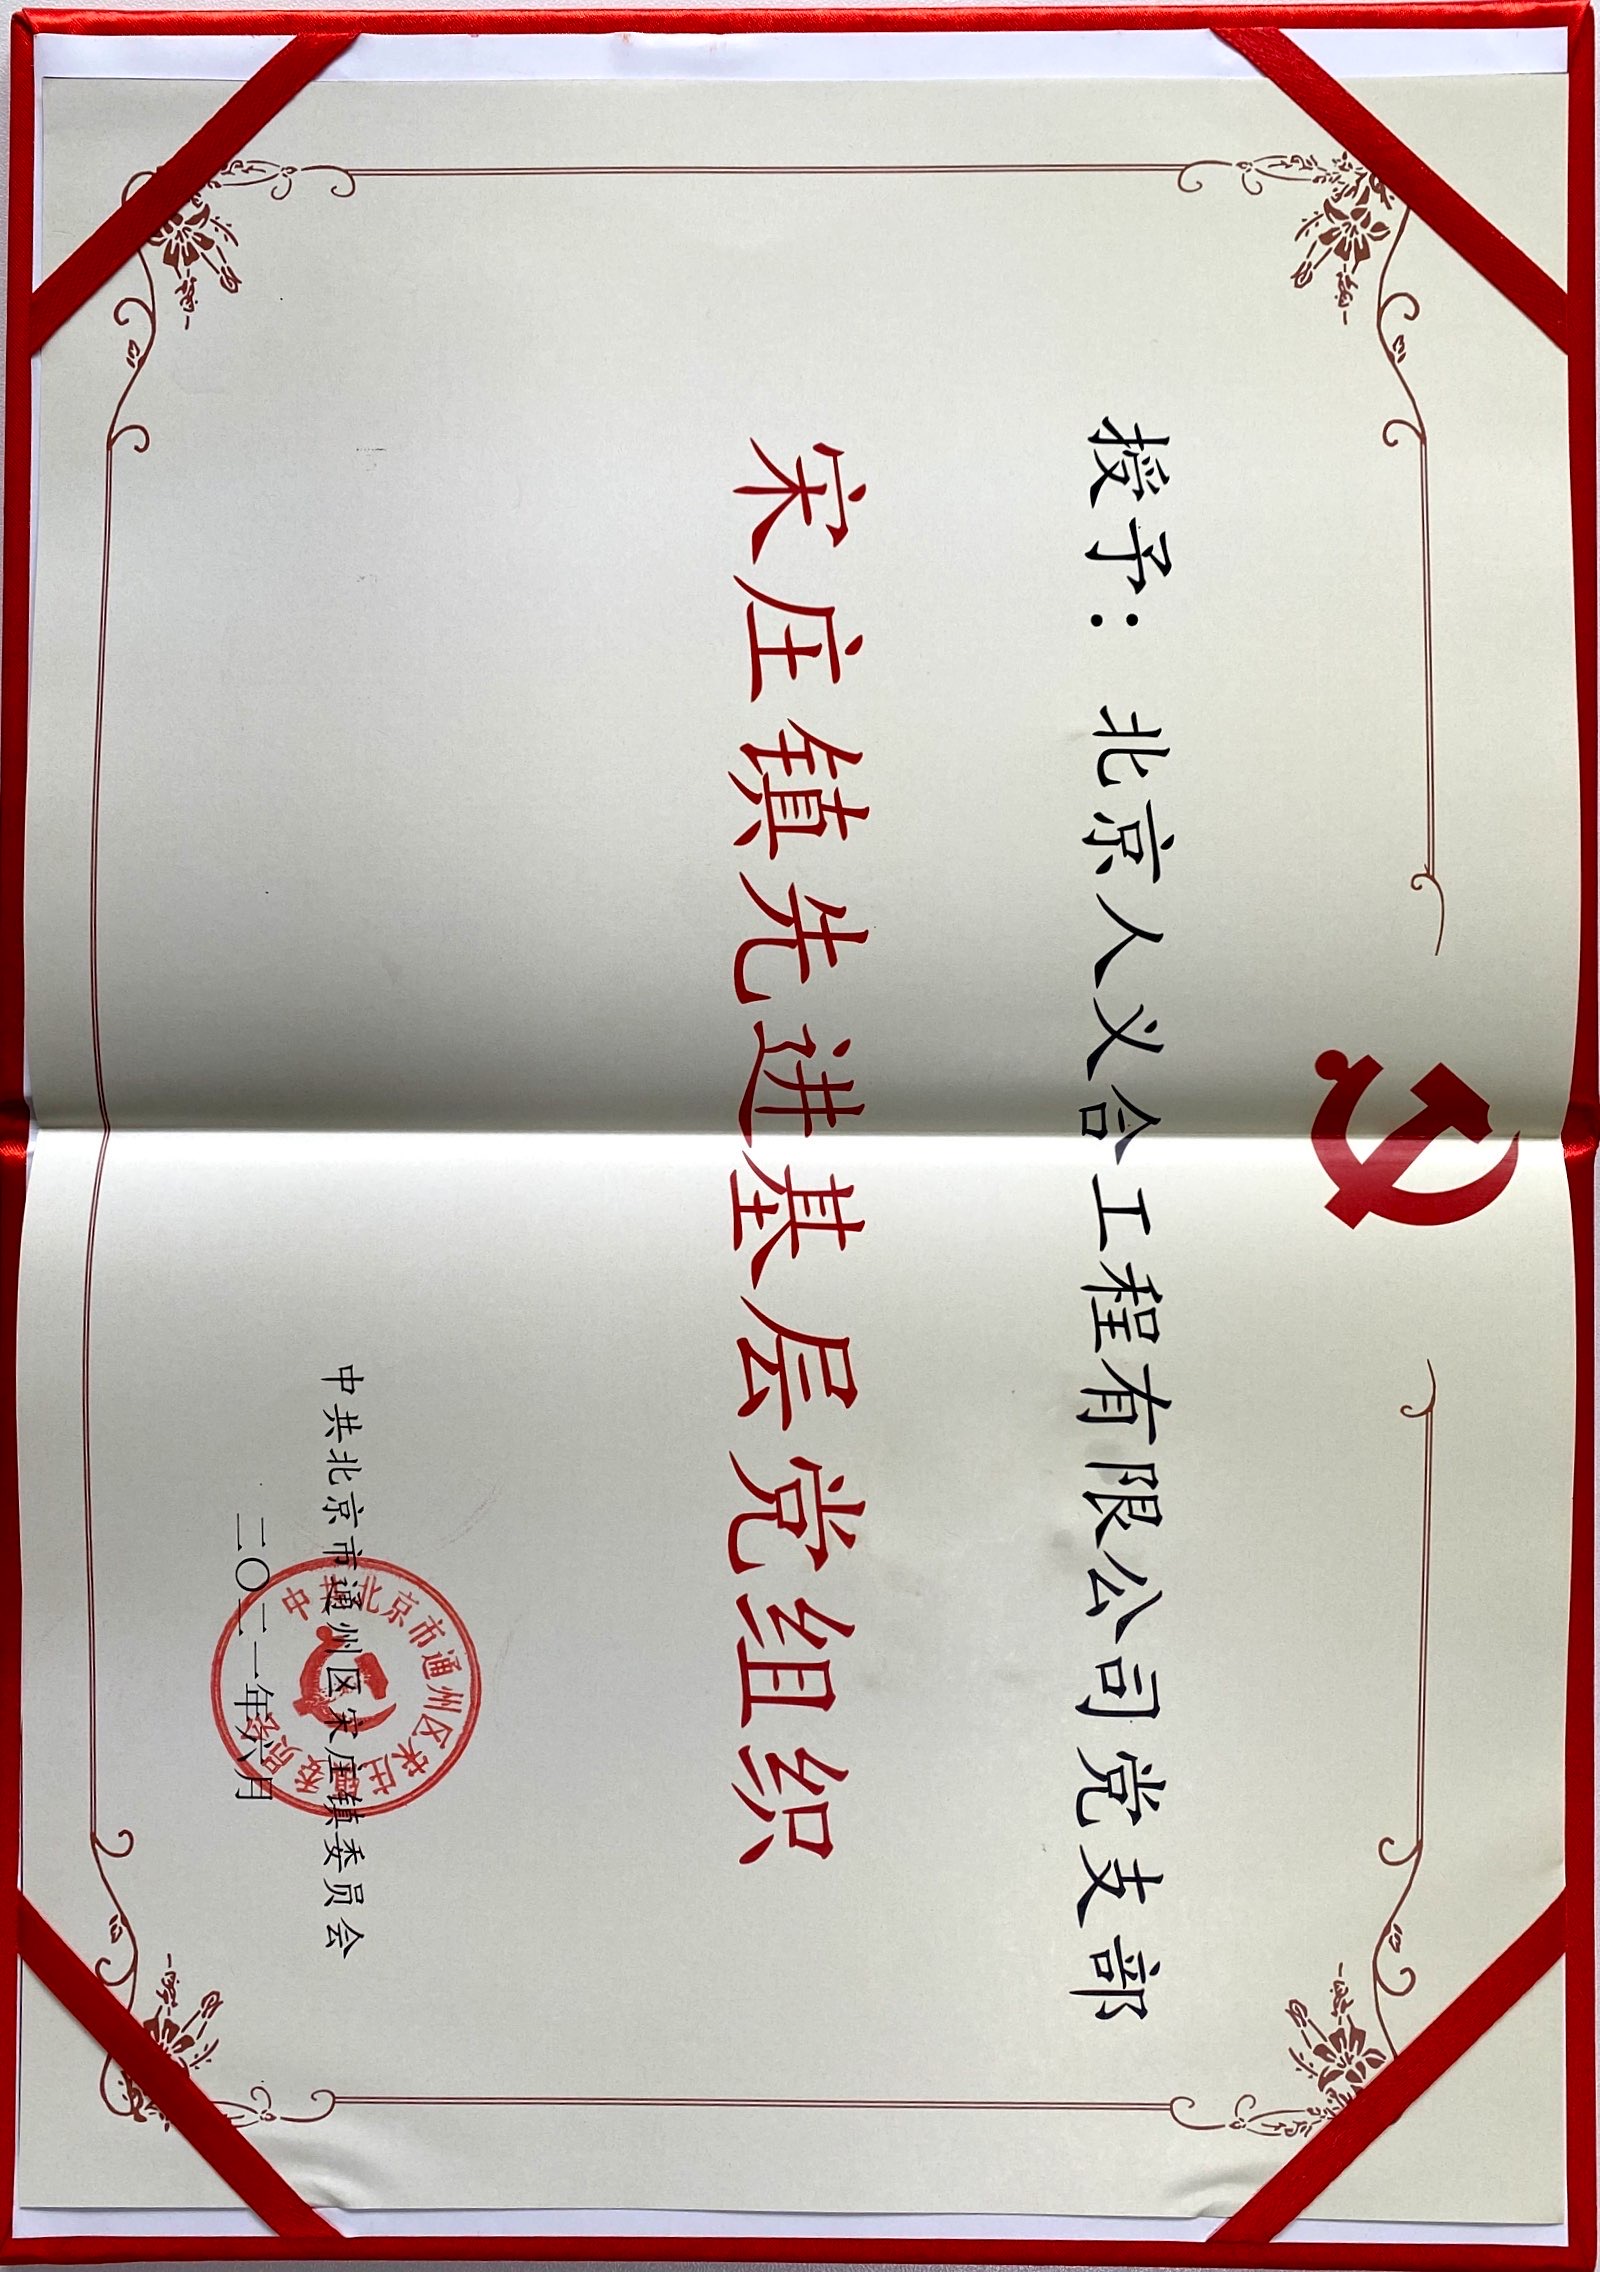 授予：北京人义合工程有限公司党支部
宋庄镇先进基层党组织
中共北京市通州区宋庄镇委员会
二〇二一年六月
中共北京市通州区宋庄镇委员会